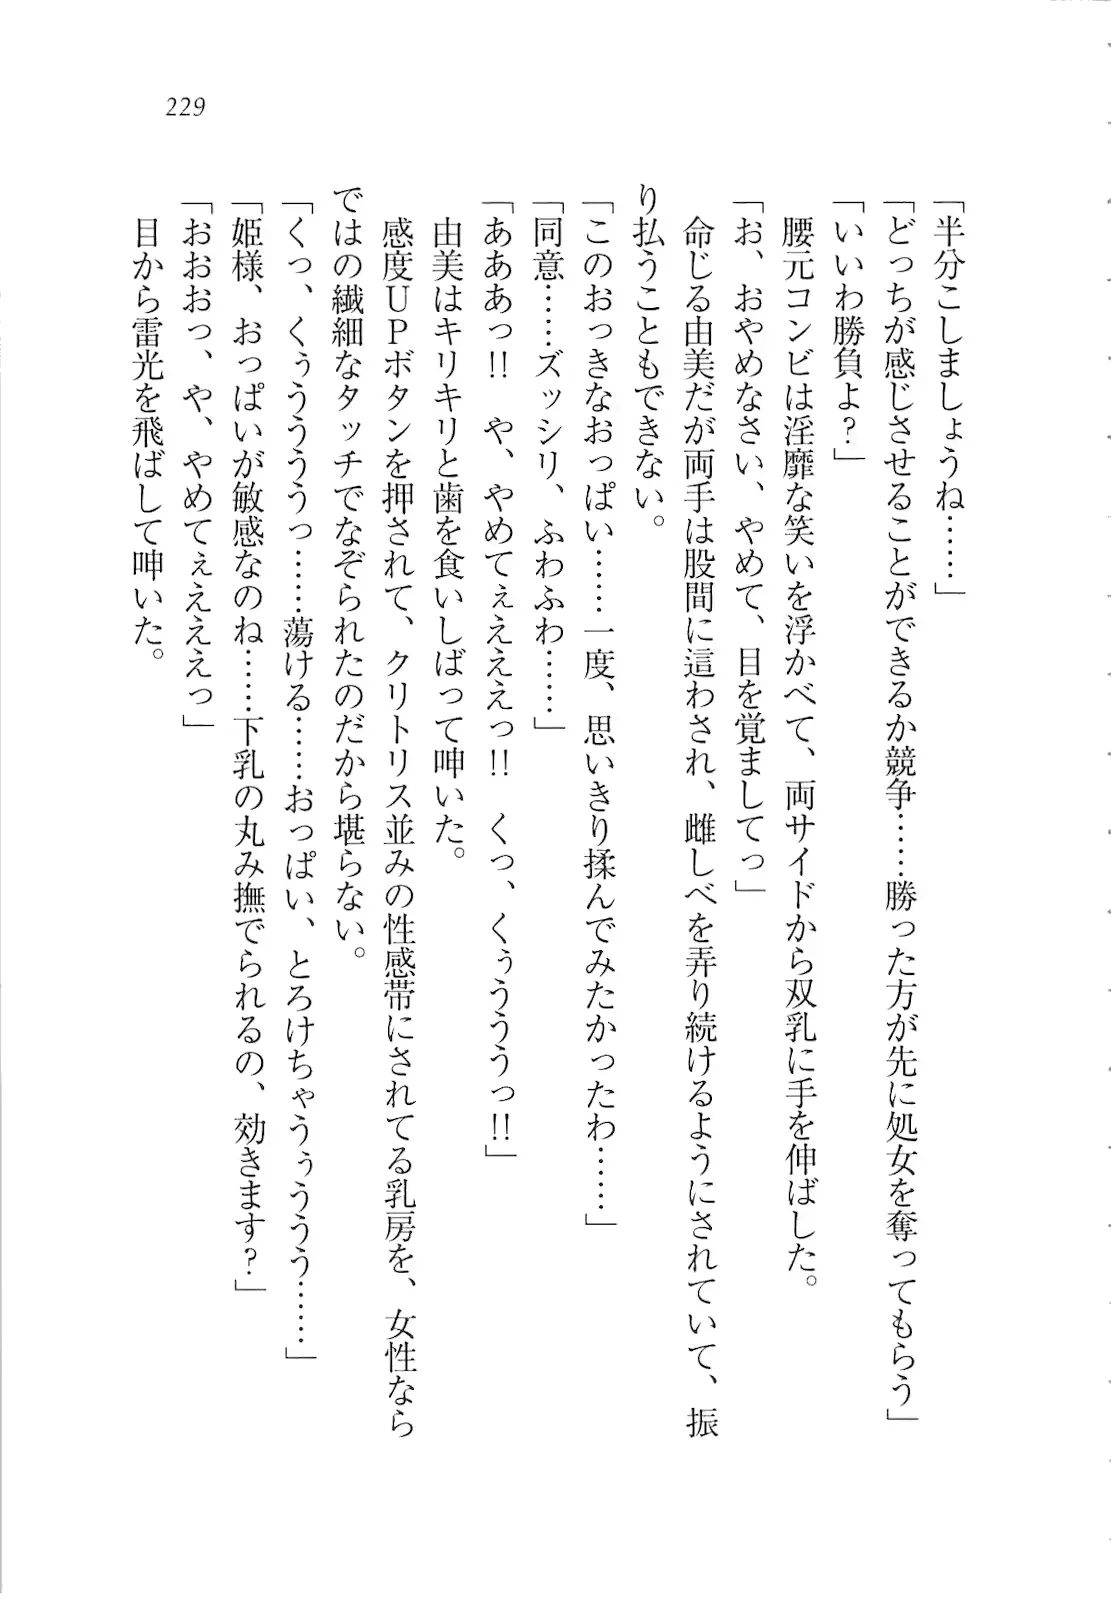 229
「半分こしましょうね……」
「どっちが感じさせることができるか競争……勝った方が先に処女を奪ってもらう」
「いいわ勝負よ？」
腰元コンビは淫靡な笑いを浮かべて、両サイドから双乳に手を伸ばした。
「お、おやめなさい、やめて、目を覚ましてっ」
命じる由美だが両手は股間に這わされ、雌しべを弄り続けるようにされていて、振
り払うこともできない。
「このおっきなおっぱい……一度、思いきり揉んでみたかったわ……」
「同意……ズッシリ、ふわふわ……」
「あああっ!!　や、やめてぇえええっ!!　くっ、くぅううっ!!」
由美はキリキリと歯を食いしばって呻いた。
感度ＵＰボタンを押されて、クリトリス並みの性感帯にされてる乳房を、女性なら
ではの繊細なタッチでなぞられたのだから堪らない。
「くっ、くぅううううっ……蕩ける……おっぱい、とろけちゃうぅううう……」
「姫様、おっぱいが敏感なのね……下乳の丸み撫でられるの、効きます？」
「おおおっ、や、やめてぇえええっ」
目から雷光を飛ばして呻いた。